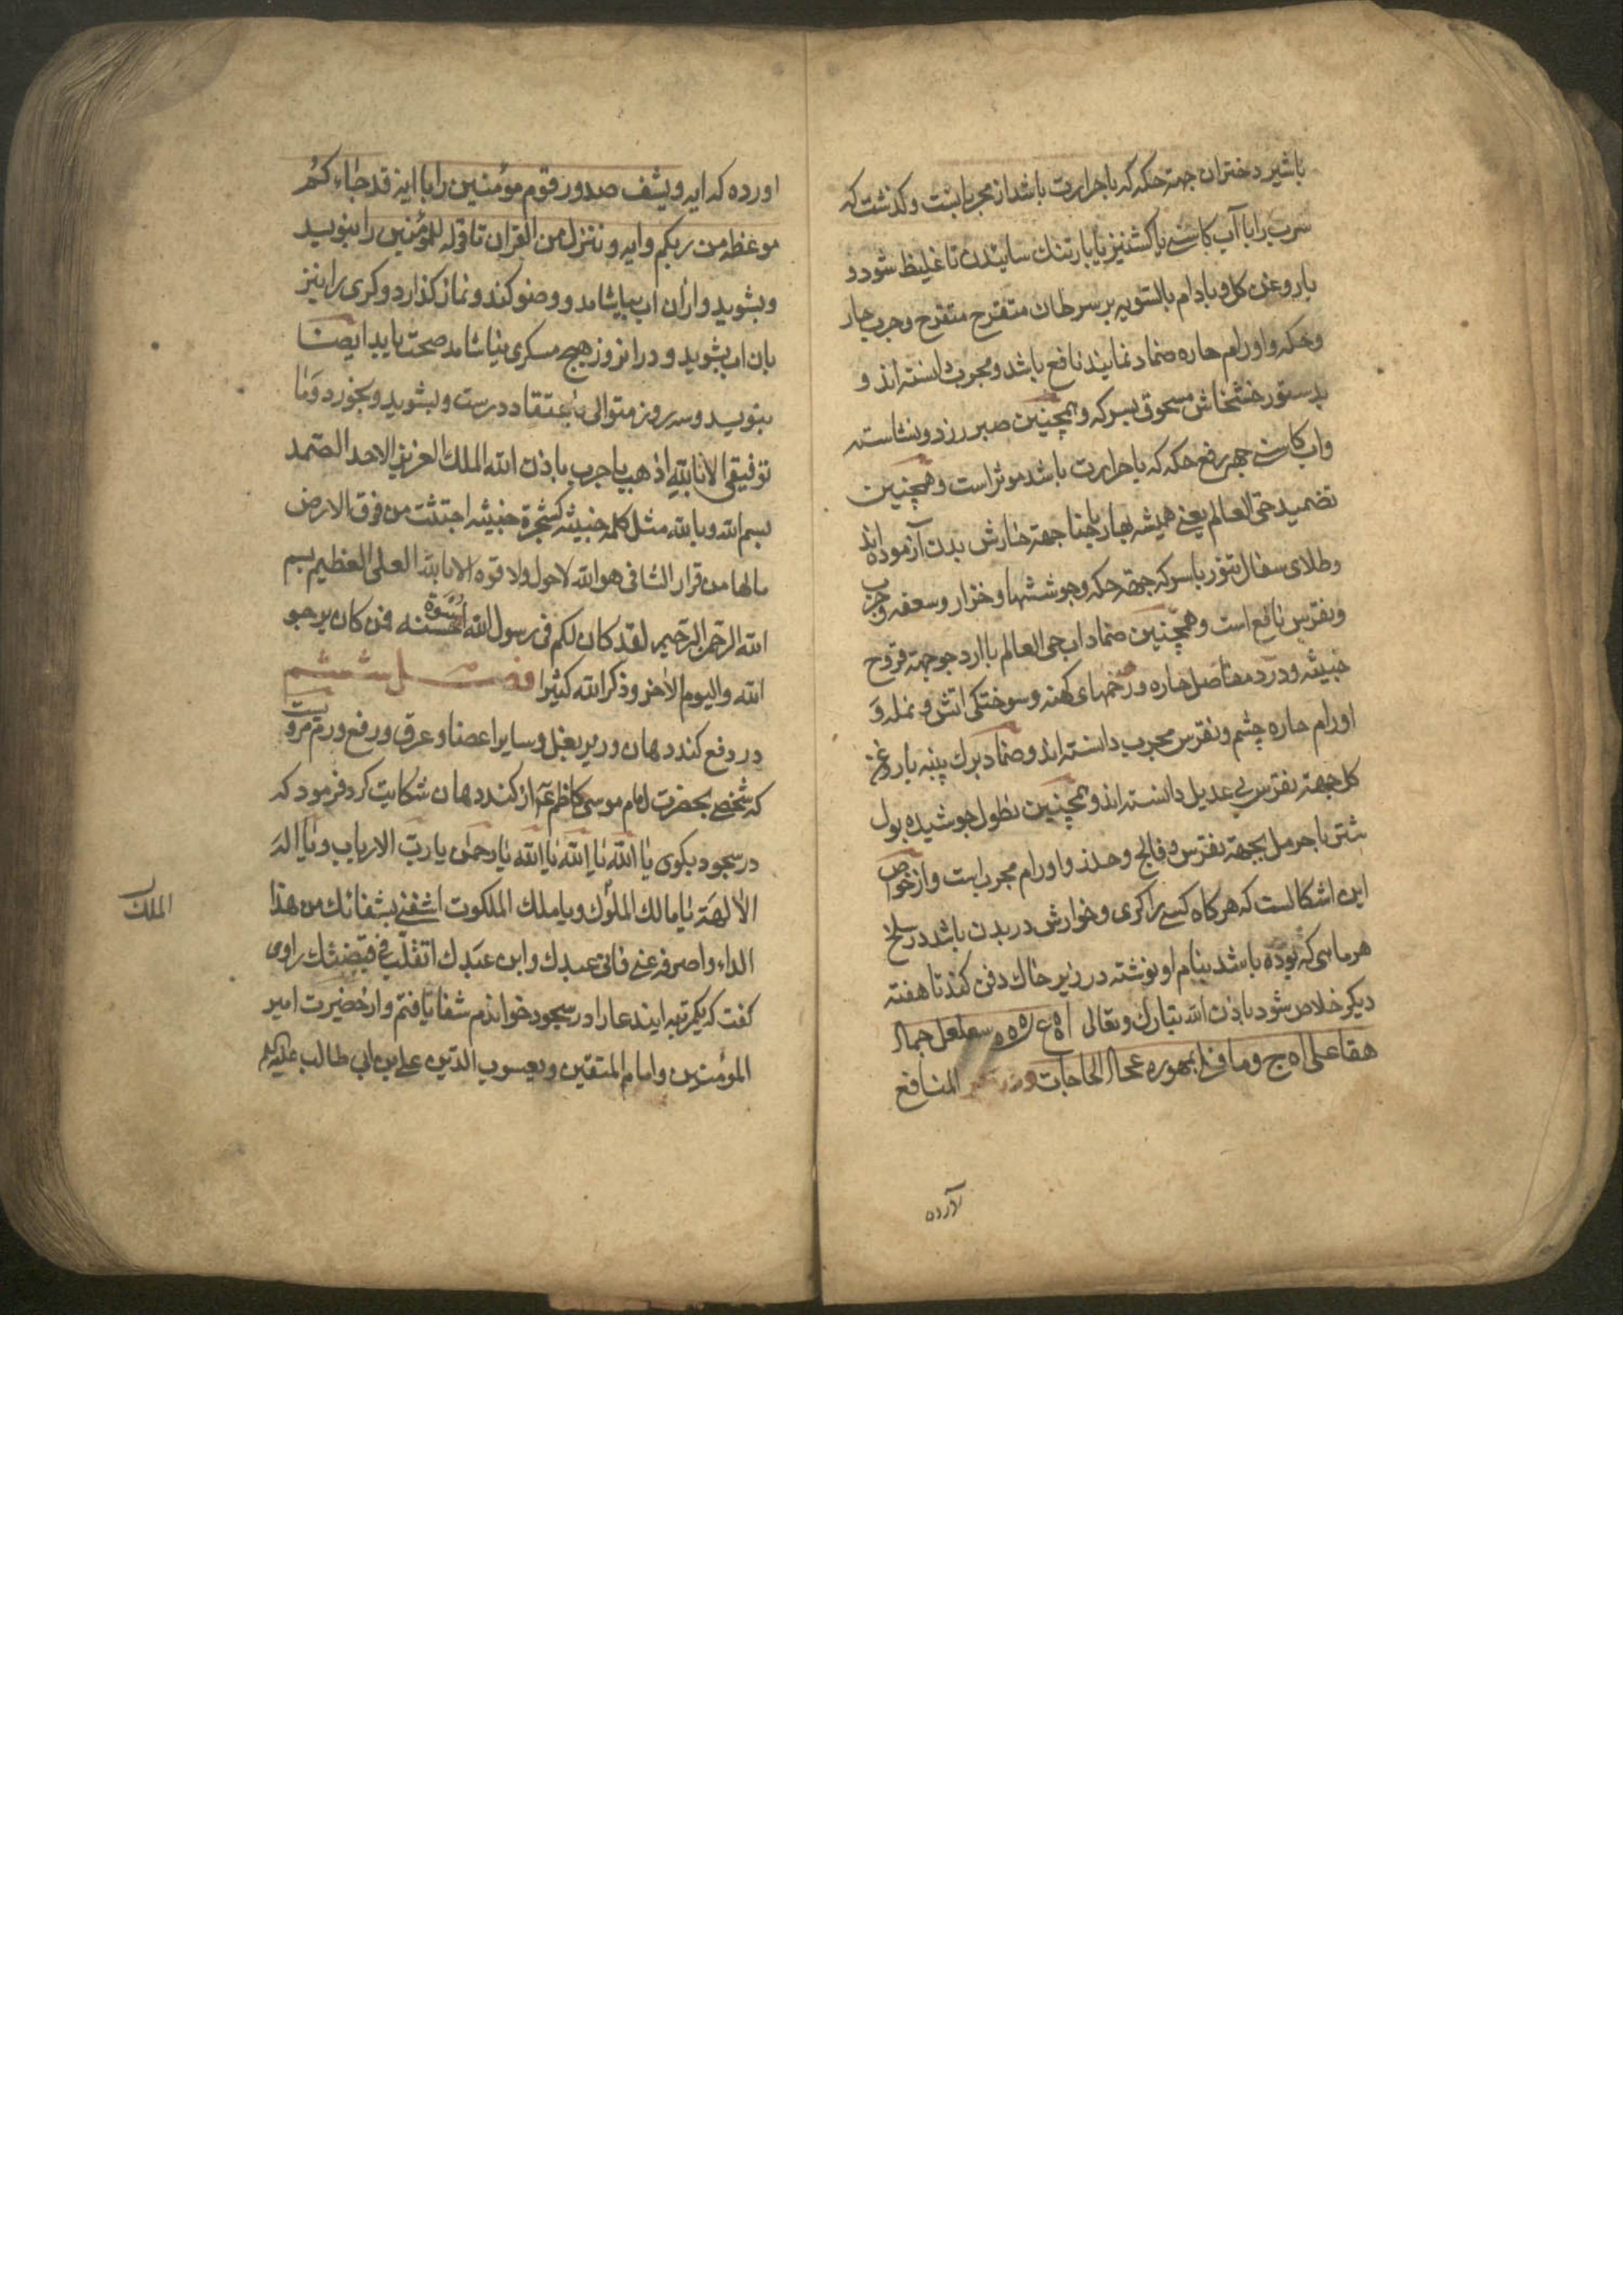 باشیر دختران جهة حکه که باحرارت باشد از مجرباتست و کذشت که
سرب را با آب کاسنی یا کشنیز یا بارتنک سایندن تا غلیظ شود و
باروغن کل و بادام بالسویه بر سرطان متقرح متقرح و جرب حار
و حکه و اورام حاره ضماد نمایند نافع باشد و مجرب دانسته اند و
بدستور خشخاش مسحوق بسرکه و همچنین صبر زرد و نشاسته
واب کاسنی جهة رفع حکه که باحرارت باشد موثر است و همچنین
تضمید حی العالم یعنی همیشه بهار باحنا جهة خارش بدن آزموده اند
و طلای سفال تنور باسرکه جهة حکه و جوششها و خزار و سعفه و جرب
و نقرس نافع است و همچنین ضماد اب حی العالم باارد جو جهة قروح
خبیثه و درد مفاصل حاره و زخمهای کهنه و سوختکی اتش و نمله و
اورام حاره چشم و نقرس مجرب دانسته اند و ضماد برك پنبه باروغن
کل جهة نقرس بی عدیل دانسته اند و همچنین نطول جوشیده بول
شتر باحرمل بجهة نقرس و فالج و خدر و اورام مجربست و از خواص
این اشکالست که هرکاه کسی را کری و خوارش در بدن باشد در سلخ
هر ماهی که بوده باشد بنام او نوشته در زیر خاك دفن کند تا هفته
دیکر خلاص شود باذن الله تبارك و تعالی
الحاجات و در المنافع
آورده
اورده که ایه و یشف صدور قوم مؤمنین را با ایه قد جاءکم
موعظه من ربکم و ایه و ننزل من القران تا قوله للمؤمنین را بنویسد
و بشوید و ازان اب بیاشامد و وضو کند و نماز کذارد و کری را نیز
بان اب بشوید و درانروز هیچ مسکری نیاشامد صحت یابد ایضا
بنویسد و سه روز متوالی باعتقاد درست و بشوید و بخورد و ما
توفیقی الا بالله اذهب یاجرب باذن الله الملك العزیز الاحد الصمد
بسم الله و بالله مثل کلمه خبیثه کشجرة خبیثه اجتثت من فوق الارض
مالها من قرار الشافی هو الله لاحول ولا قوه الا بالله العلی العظیم بسم
الله الرحمن الرحیم لقد کان لکم فی رسول الله اسوة حسنه لمن کان یرجو
الله و الیوم الاخر و ذکر الله کثیرا فصل ششم
در دفع کند دهان و زیر بغل و سایر اعضا و عرق و رفع ورم مرویست
که شخصی بحضرت امام موسی کاظم ع از کند دهان شکایت کرد فرمود که
در سجود بکوی یا الله یا الله یا الله یا رحمن یا رب الارباب و یا اله
الالهة یا مالك الملوك و یا ملك الملکوت اشفنی بشفائك من هذا
الداء و اصرفه عنی فانی عبدك و ابن عبدك اتقلب فی قبضتك راوی
کفت که یکمرتبه ایندعا را در سجود خواندم شفا یافتم و از حضرت امیر
المؤمنین و امام المتقین و یعسوب الدین علی بن ابی طالب
الملك